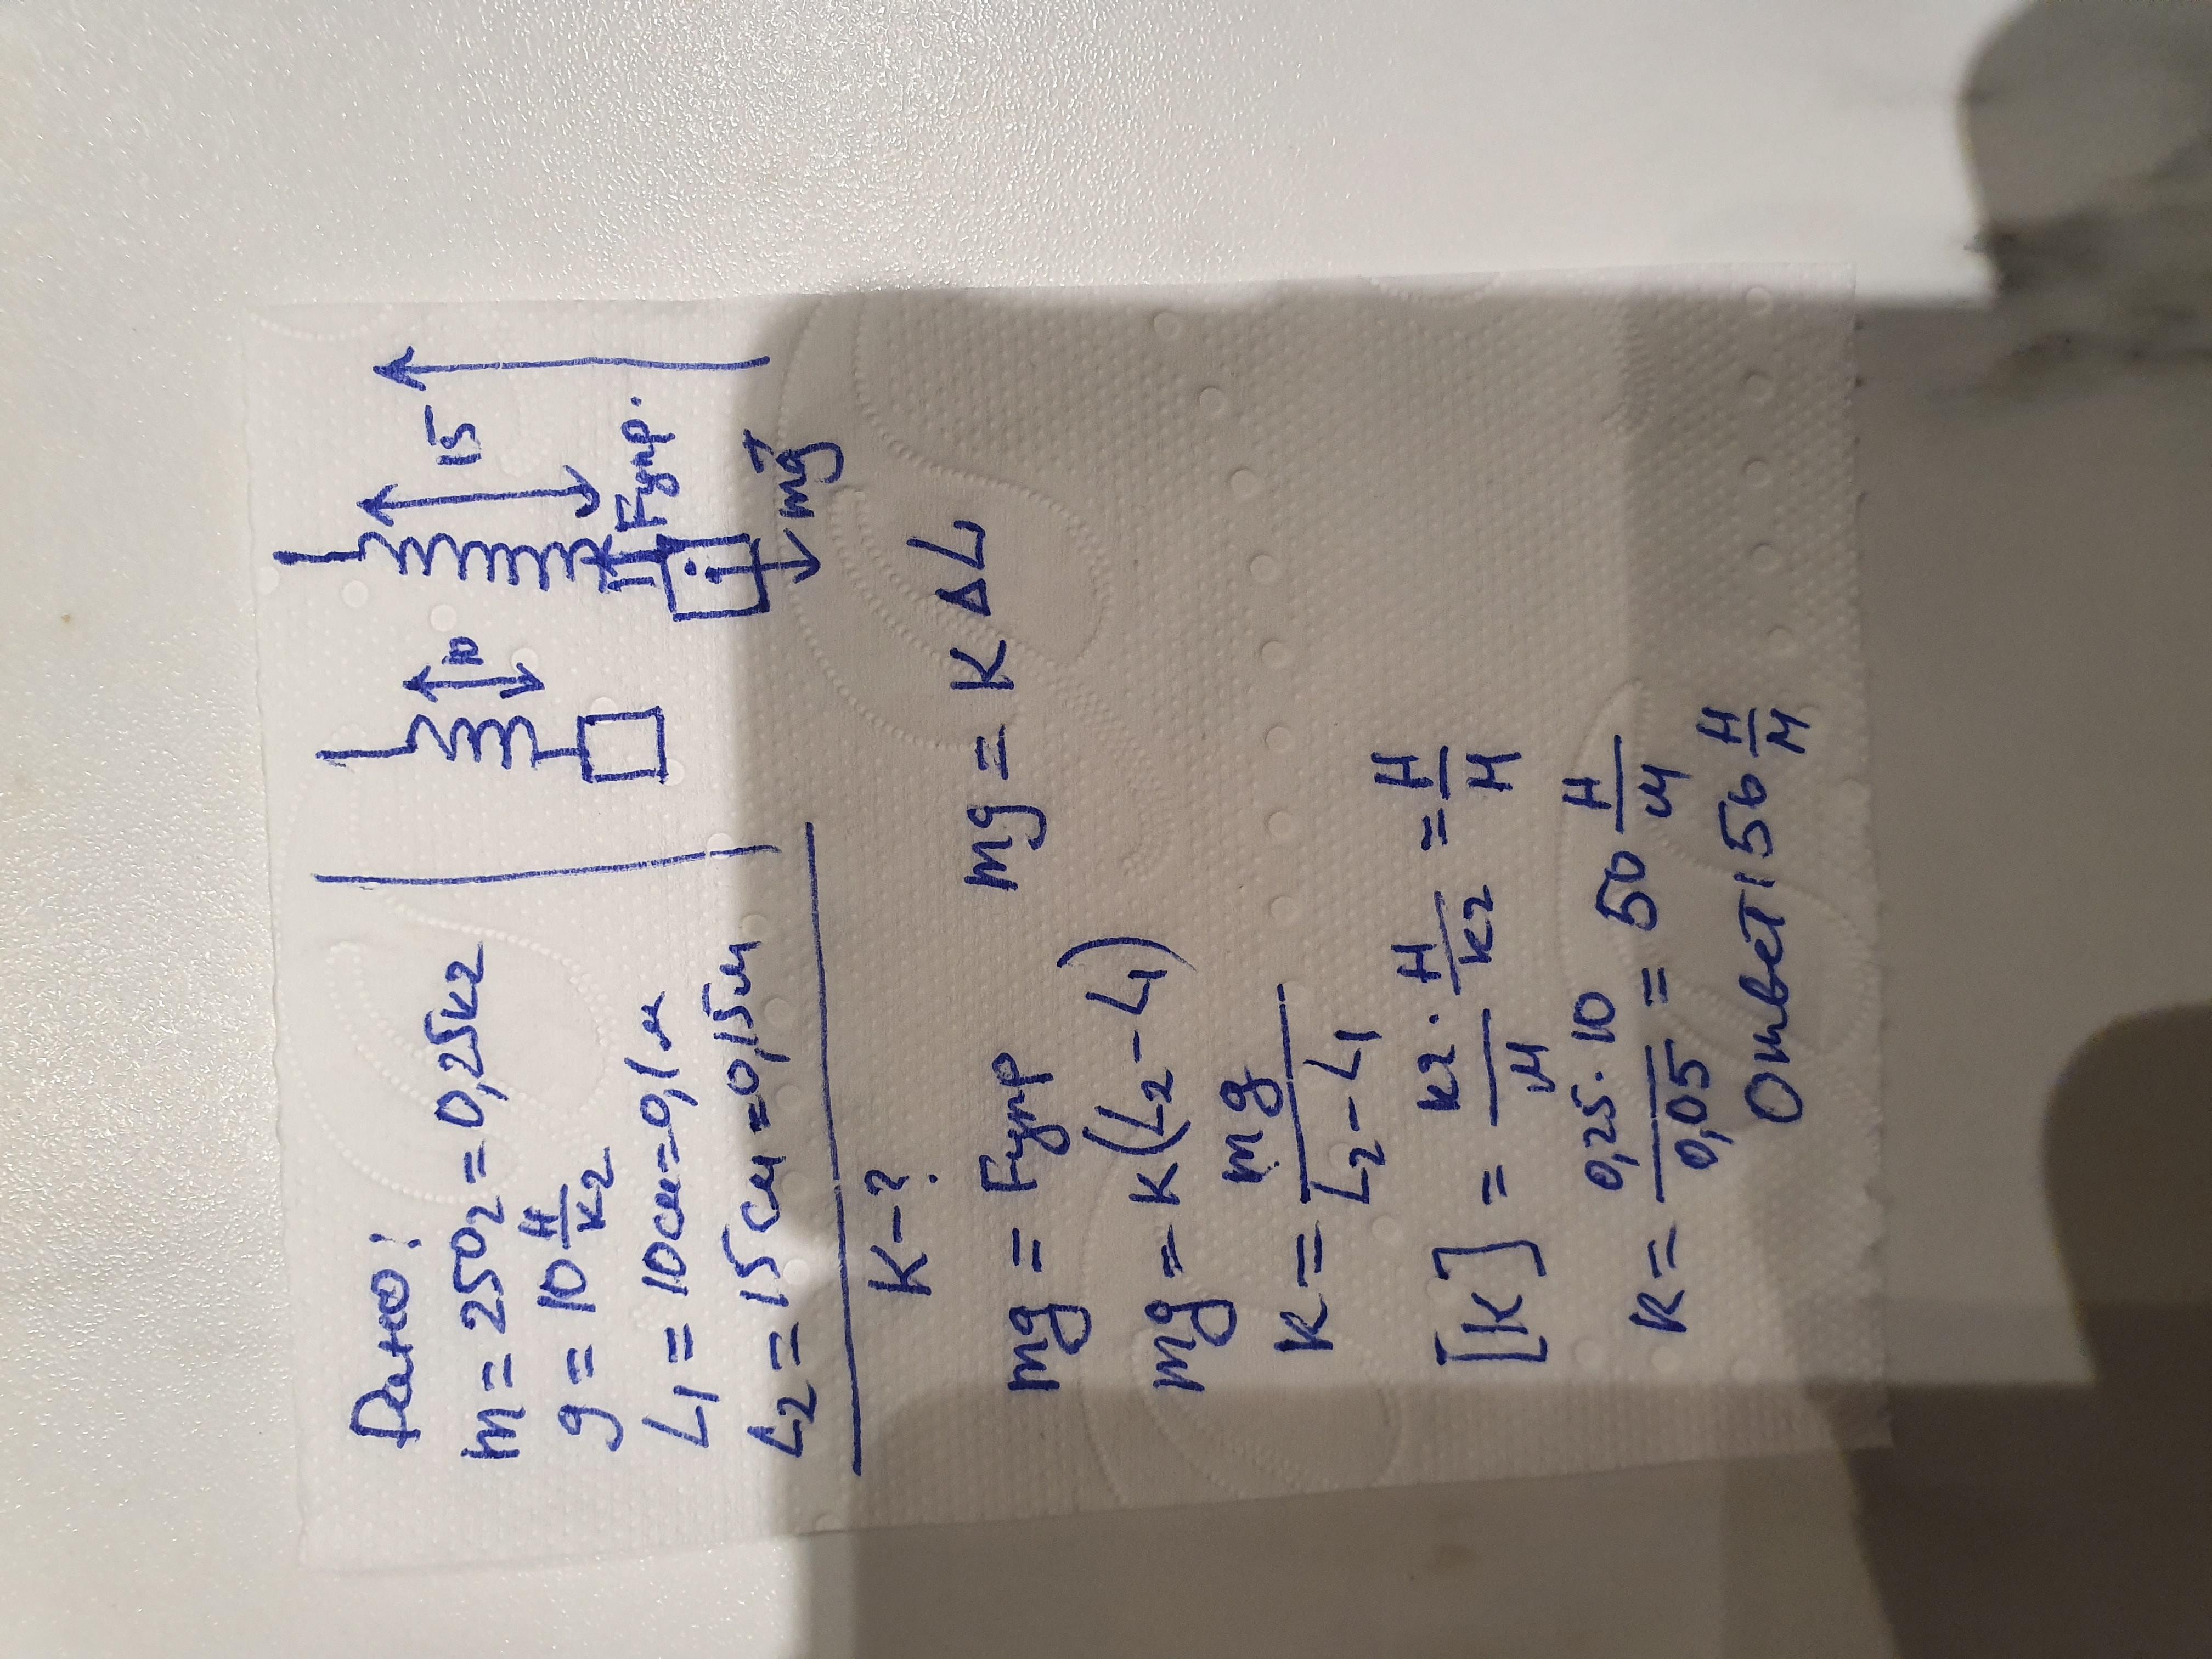 Дано:
m = 250г = 0,25кг
g = 10 Н/кг
L₁ = 10см = 0,1м
L₂ = 15см = 0,15м
K - ?
10
15
Fупр.
mg⃗
mg = Fупр
mg = K ΔL
mg = K(L₂ - L₁)
K = mg/(L₂ - L₁)
[K] = (кг · Н/кг)/м = Н/м
K = (0,25 · 10)/0,05 = 50 Н/м
Ответ: 50 Н/м